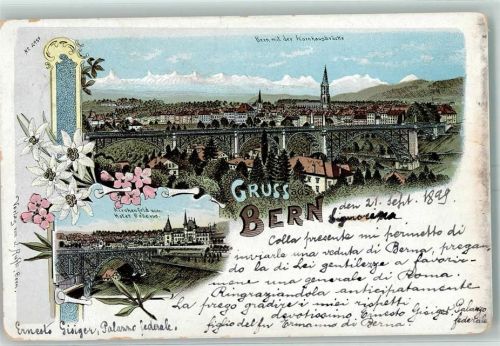 Bern mit der Kornhausbrücke
GRUSS
BERN
den 21. Sept. 1899
Signorina
Colla presente mi permetto di
inviarle una veduta di Berna, pregan-
do la di Lei gentilezza a favorir-
mene una generale di Roma.
Ringraziandola anticipatamente
La prego gradire i miei rispetti
devotissimo Ernesto Gisiger, Palazzo
federale
figlio del fu Ermanno di Berna.
Kirchenfeld und
Ernesto Gisiger, Palazzo federale.